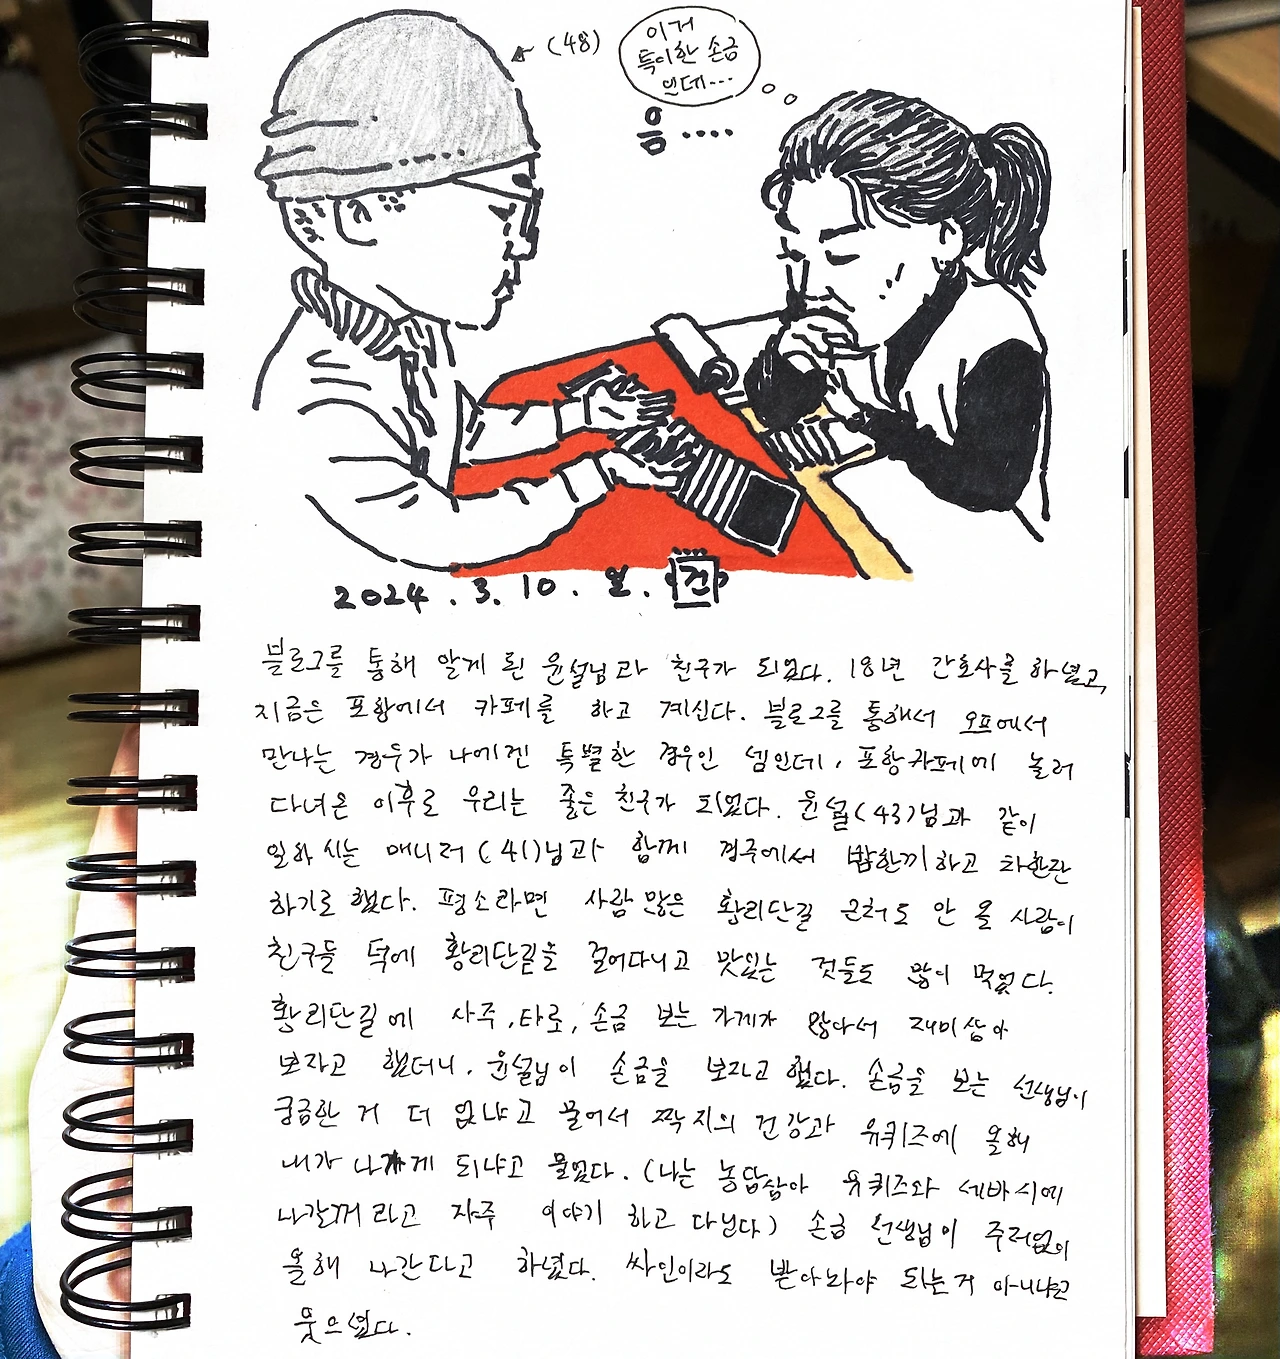 (48)
이거
특이한 손금
인데...
음....
2024. 3. 10. 일. 건
블로그를 통해 알게 된 윤설님과 친구가 되었다. 18년 간호사를 하셨고,
지금은 포항에서 카페를 하고 계신다. 블로그를 통해서 오프에서
만나는 경우가 나에겐 특별한 경우인 셈인데, 포항카페에 놀러
다녀온 이후로 우리는 좋은 친구가 되었다. 윤설(43)님과 같이
일하시는 매니저(41)님과 함께 경주에서 밥한끼하고 차한잔
하기로 했다. 평소라면 사람많은 황리단길 근처도 안 올 사람이
친구들 덕에 황리단길을 걸어다니고 맛있는 것들도 많이 먹었다.
황리단길에 사주,타로,손금 보는 가게가 많아서 재미삼아
보자고 했더니, 윤설님이 손금을 보자고 했다. 손금을 보는 선생님이
궁금한 거 더 없냐고 물어서 짝지의 건강과 유퀴즈에 올해
내가 나가게 되냐고 물었다. (나는 농담삼아 유퀴즈와 세바시에
나갈꺼라고 자주 이야기 하고 다닌다) 손금 선생님이 주저없이
올해 나간다고 하셨다. 싸인이라도 받아놔야 되는거 아니냐고
웃으셨다.